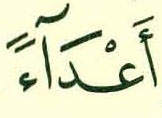 أَعْدَآءً